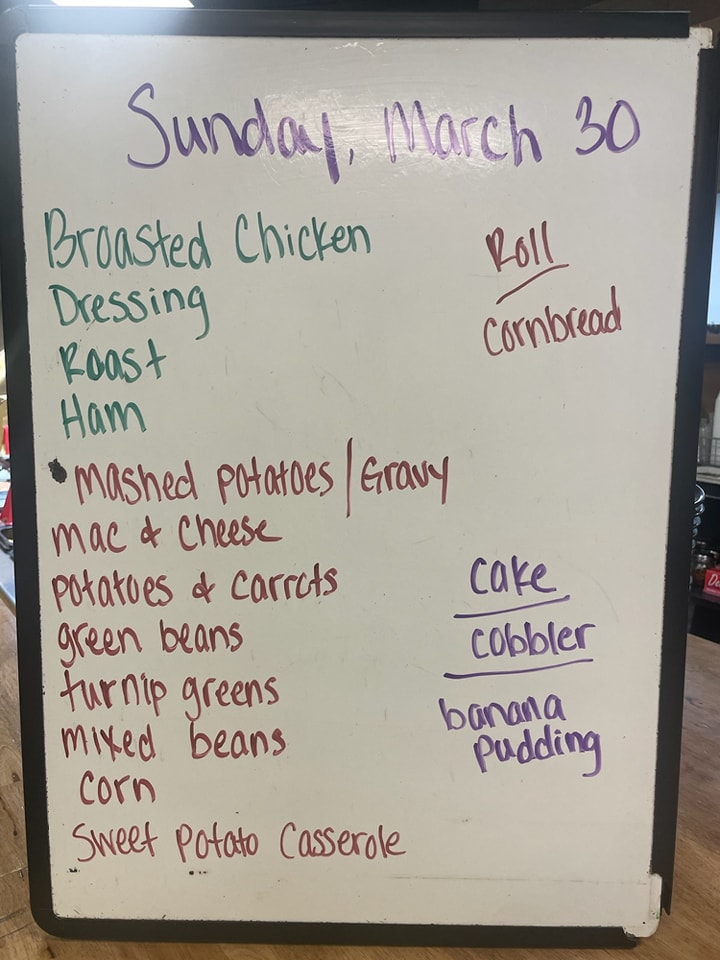 Sunday, March 30
Broasted Chicken
Dressing
Roast
Ham
Mashed potatoes/Gravy
mac & cheese
potatoes & carrots
green beans
turnip greens
mixed beans
corn
Sweet Potato Casserole
Roll
Cornbread
Cake
Cobbler
banana
pudding